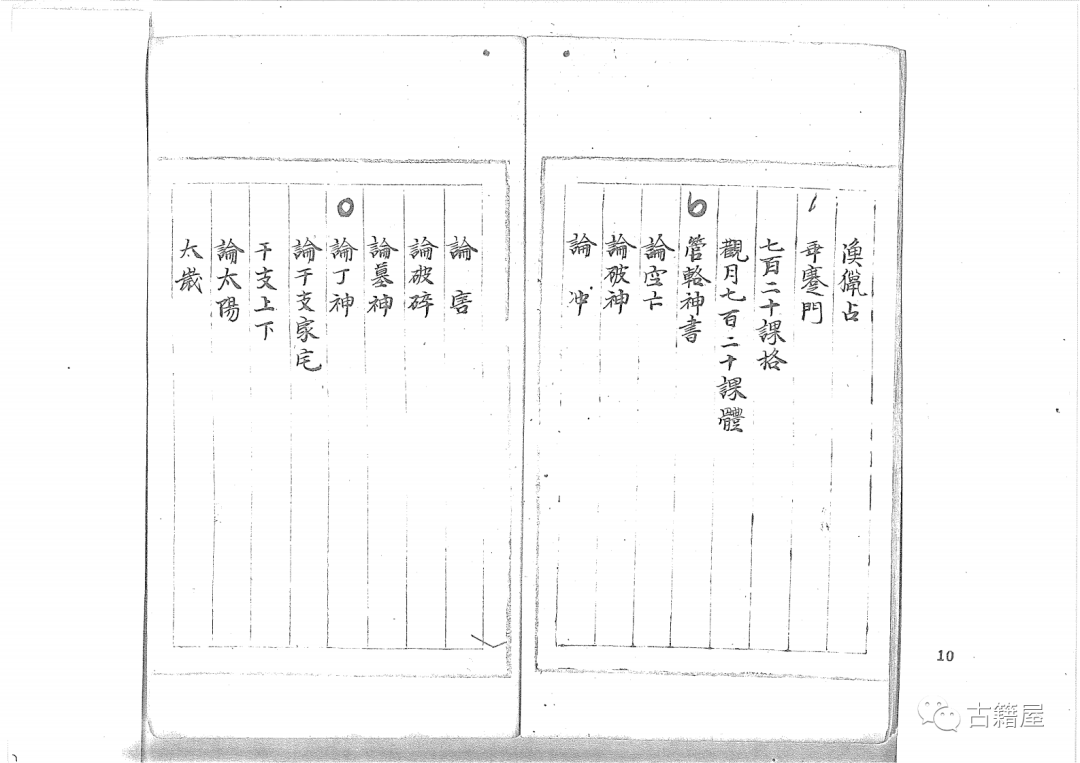 漁獵占
畢蹇門
七百二十課格
觀月七百二十課體
6
管輅神書
論空亡
論破神
論冲
論害
論破碎
論墓神
0
論丁神
論干支家宅
干支上下
論太陽
太歲
10
古籍屋